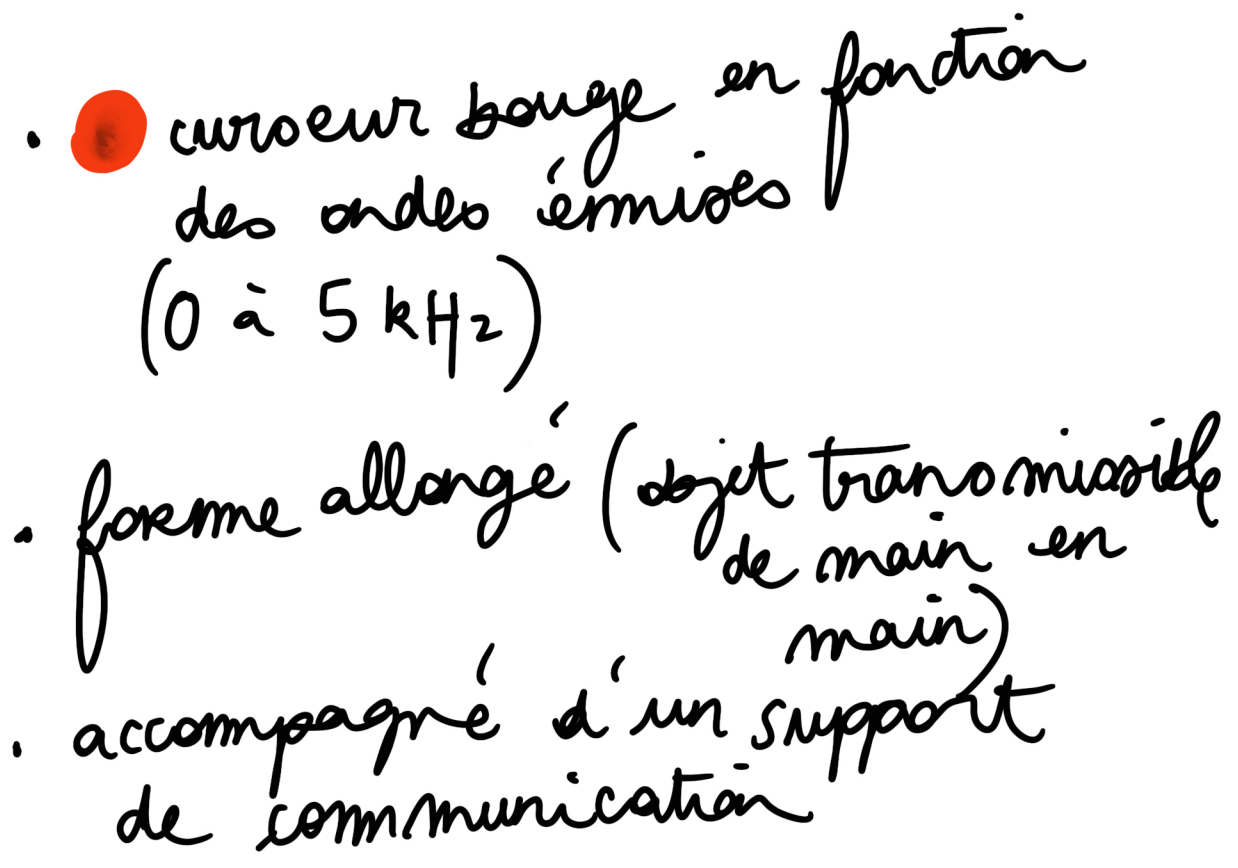 · curseur bouge en fonction
des ondes émises
(0 à 5 kHz)
· forme allongé (objet transmissible
de main en
main)
· accompagné d'un support
de communication